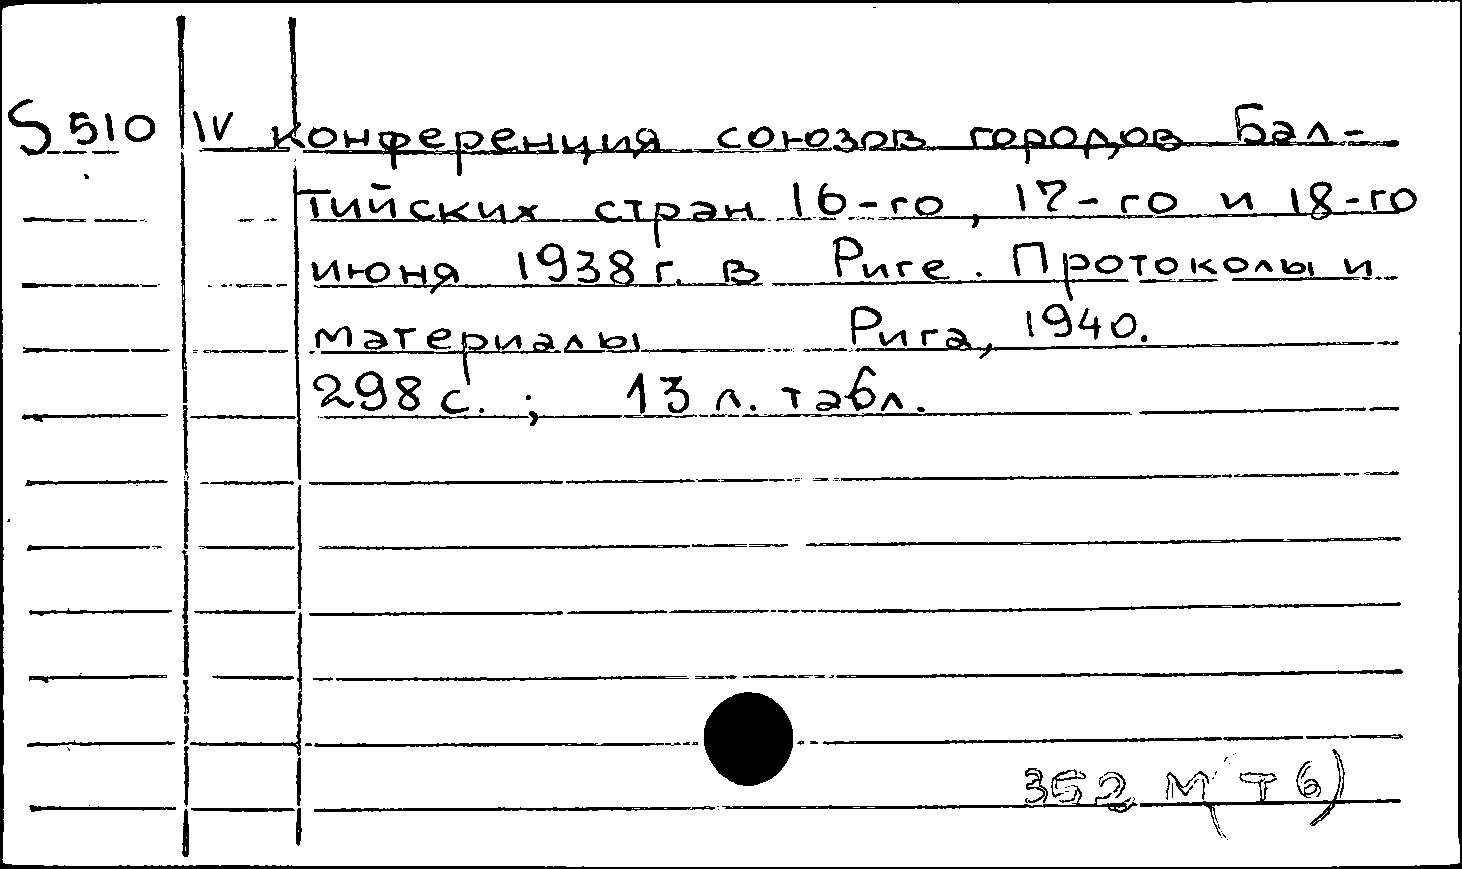 S 510 IV конференция союзов городов Бал-
тийских стран 16-го, 17-го и 18-го
июня 1938 г. в Риге. Протоколы и
материалы Рига, 1940.
298 с. ; 13 л. табл.
352 М(Т6)